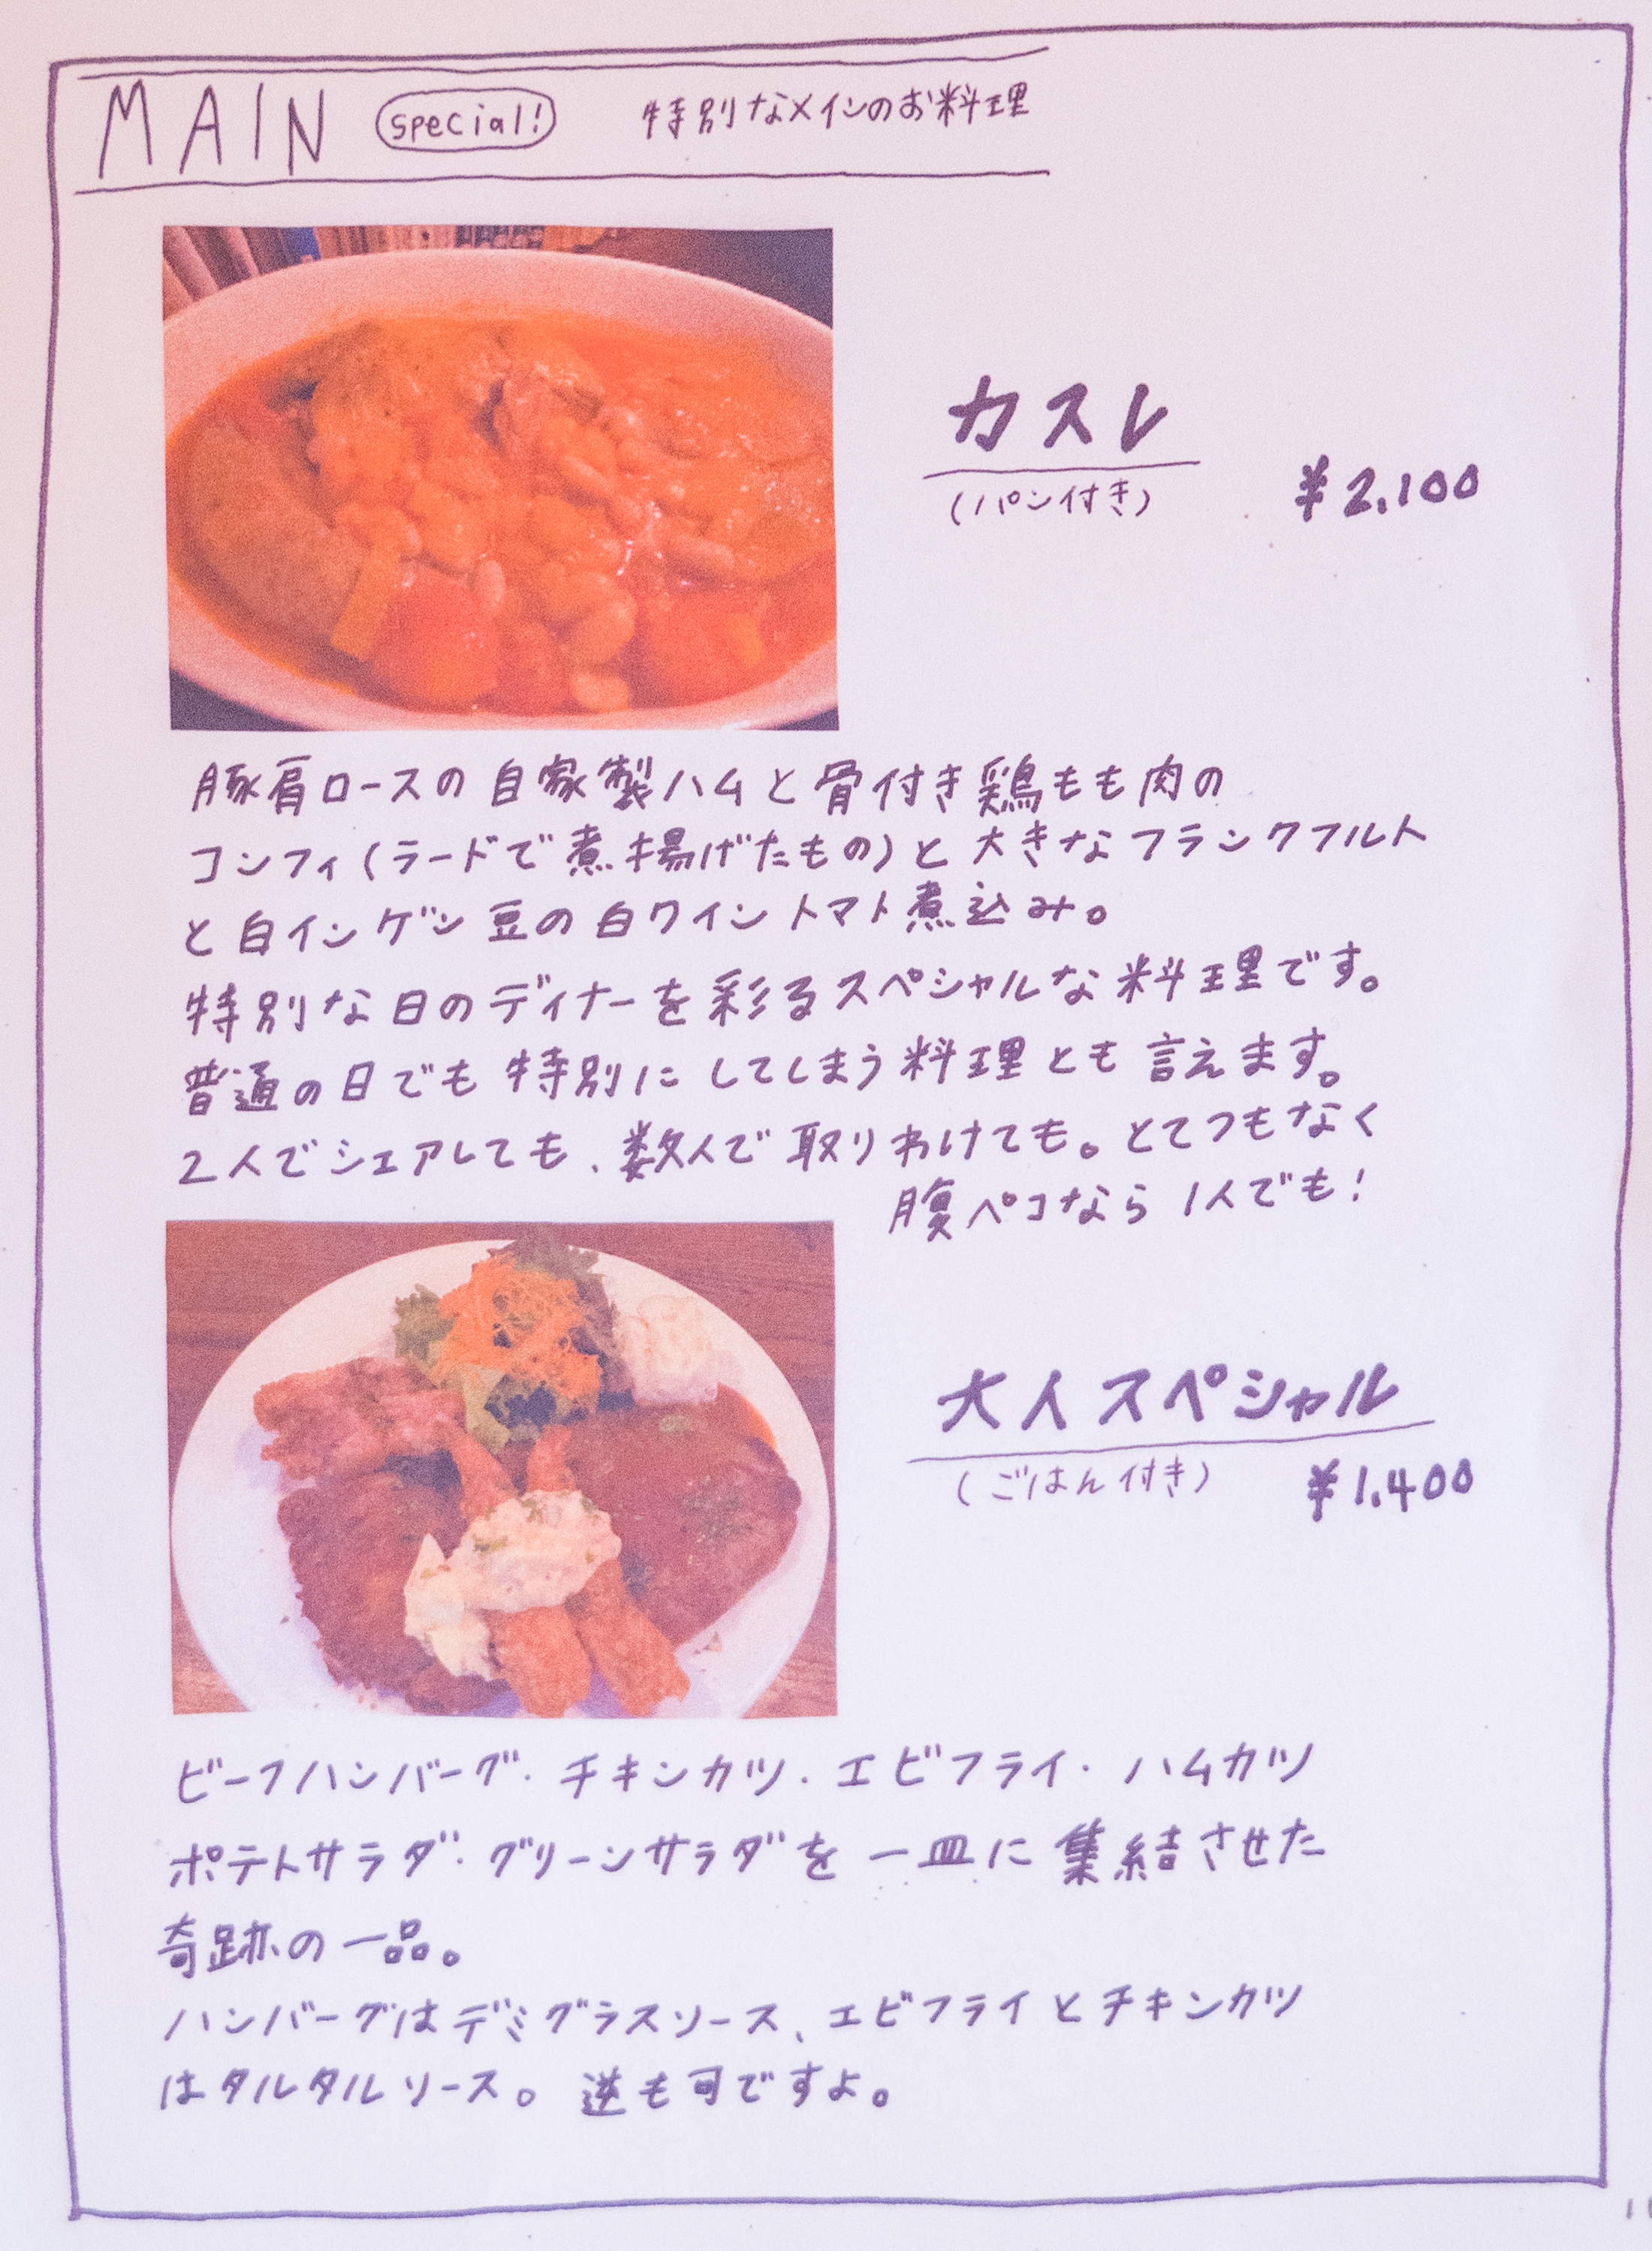 MAIN special! 特別なメインのお料理
カスレ
(パン付き)
¥2,100
豚肩ロースの自家製ハムと骨付き鶏もも肉の
コンフィ(ラードで煮揚げたもの)と大きなフランクフルト
と白インゲン豆の白ワイントマト煮込み。
特別な日のディナーを彩るスペシャルな料理です。
普通の日でも特別にしてしまう料理とも言えます。
2人でシェアしても、数人で取りわけても。とてつもなく
腹ペコなら1人でも!
大人スペシャル
(ごはん付き)
¥1,400
ビーフハンバーグ・チキンカツ・エビフライ・ハムカツ
ポテトサラダ・グリーンサラダを一皿に集結させた
奇跡の一品。
ハンバーグはデミグラスソース、エビフライとチキンカツ
はタルタルソース。逆も可ですよ。